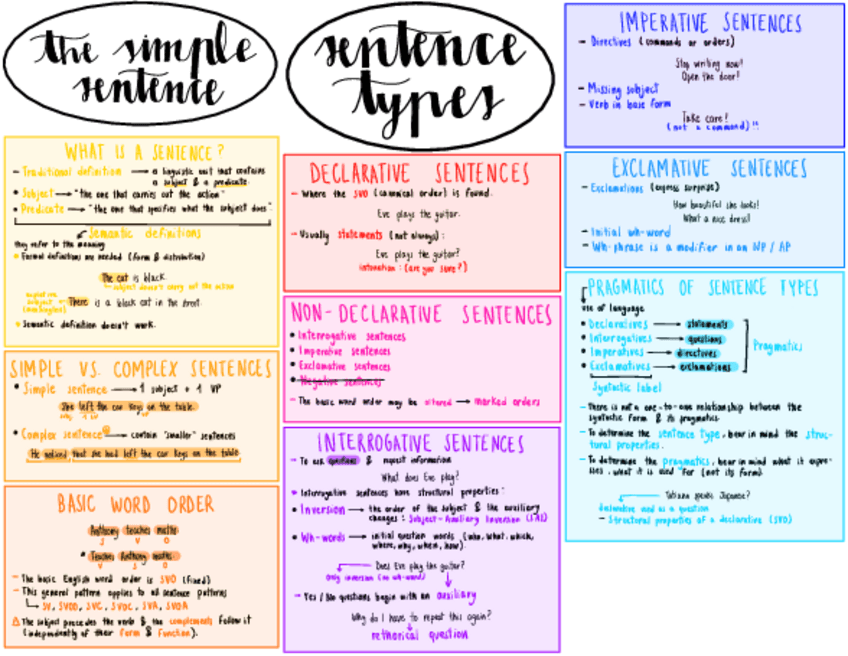 the simple
sentence
WHAT IS A SENTENCE?
- Traditional definition → a linguistic unit that contains
a subject & a predicate.
• Subject → "the one that carries out the action"
• Predicate → "the one that specifies what the subject does".
Semantic definitions
they refer to the meaning
• Formal definitions are needed (form & distribution)
The cat is black.
subject doesn't carry out the action
subject
(meaningless)
There is a black cat in the front.
• Semantic definition doesn't work.
SIMPLE VS. COMPLEX SENTENCES
• Simple sentence → 1 subject + 1 VP
She left the car keys on the table.
• Complex sentence → contain "smaller" sentences
He noticed that she had left the car keys on the table
BASIC WORD ORDER
Anthony teaches maths
S V O
• Teaches Anthony maths
V S O
- The basic English word order is SVO (fixed)
- This general pattern applies to all sentence patterns
SV, SVOO, SVC, SVOC, SVA, SVOA
⚠ The subject precedes the verb & the complements follow it
(independently of their form & function).
sentence
types
DECLARATIVE SENTENCES
- Where the SVO (canonical order) is found.
Eve plays the guitar.
- Usually statements (not always):
Eve plays the guitar?
intonation: (are you sure?)
NON-DECLARATIVE SENTENCES
• Interrogative sentences
• Imperative sentences
• Exclamative sentences
• Negative sentences
- The basic word order may be altered → marked orders
INTERROGATIVE SENTENCES
- To ask questions & request information
What does Eve play?
• Interrogative sentences have structural properties:
• Inversion → the order of the subject & the auxiliary
changes: Subject-Auxiliary Inversion (SAI)
• Wh-words → initial question words (who, what, which,
where, why, when, how).
Does Eve play the guitar?
only inversion (no wh-word)
- Yes/No questions begin with an auxiliary
Why do I have to repeat this again?
rethorical question
IMPERATIVE SENTENCES
- Directives (commands or orders)
Stop writing now!
Open the door!
- Missing subject
- Verb in base form
Take care!
(not a command)!!
EXCLAMATIVE SENTENCES
- Exclamations (express surprise)
How beautiful she looks!
What a nice dress!
- Initial wh-word
- Wh-phrase is a modifier in an NP / AP
PRAGMATICS OF SENTENCE TYPES
use of language
• Declaratives → statements
• Interrogatives → questions
• Imperatives → directives
• Exclamatives → exclamations
Pragmatics
Syntactic label
- There is not a one-to-one relationship between the
syntactic form & its pragmatics
- To determine the sentence type, bear in mind the struc-
tural properties.
- To determine the pragmatics, bear in mind what it expre-
sses, what it is used for (not its form).
Tatiana speaks Japanese?
declarative used as a question
- Structural properties of a declarative (SVO)